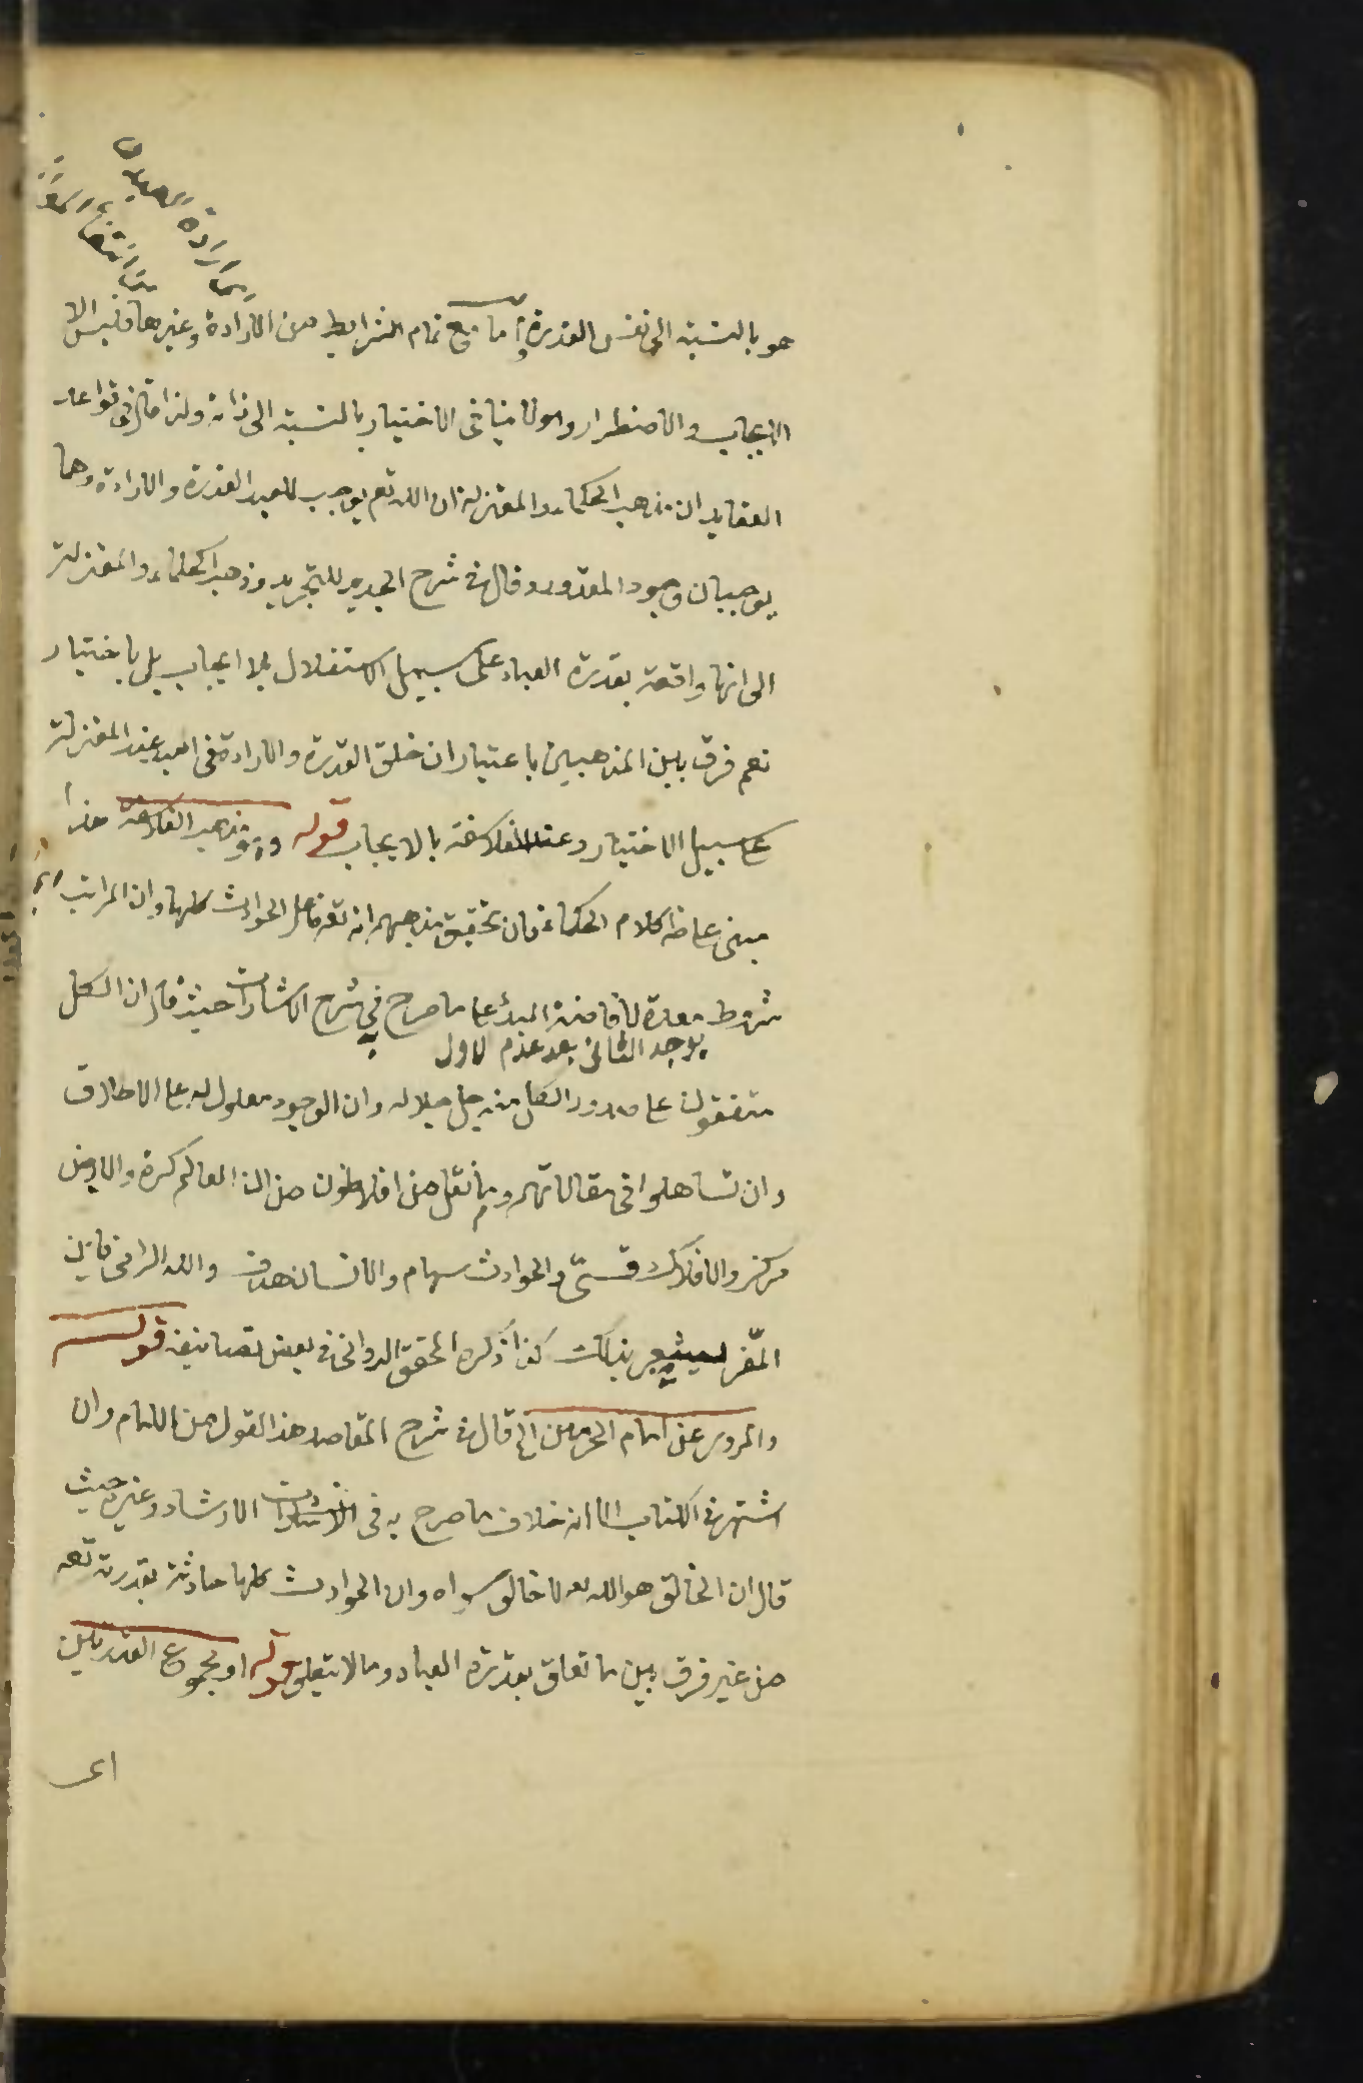 هو بالنسبة الى نفس القدرة واما مع تمام الشرايط من الارادة وغيرها فليس الا
الايجاب والاضطرار وهو لا ينافى الاختيار بالنسبة الى ذاته ولذا قال فى قواعد
العقايد ان مذهب الحكماء والمعتزلة ان الله تع يوجب للعبد القدرة والارادة وهما
يوجبان وجود المقدور وقال فى شرح الجديد للتجريد وذهب الحكماء والمعتزلة
الى انها واقعة بقدرة العباد على سبيل الاستقلال بلا ايجاب بل باختيار
نعم فرق بين المذهبين باعتبار ان خلق القدرة والارادة فى العبد عند المعتزلة
ع سبيل الاختيار وعند الفلاسفة بالايجاب قوله ومذهب الفلاسفة هذا
مبنى على ظ كلام الحكماء فان تحقيق مذهبهم انه تع فاعل الحوادث كلها وان المراتب
شروط معدة لافاضة المبدء على ما صرح في شرح الاشارات حيث قال ان الكل
يوجد الثانى بعد عدم لاول
متفقون على صدور الكل منه جل جلاله وان الوجود معلول له على الاطلاق
وان تساهلوا فى مقالاتهم وما نقل من افلاطون من ان العالم كرة والارض
مركز والافلاك قسىّ والحوادث سهام والانسان هدف والله الرامى فاين
المفّر يشعر بذلك كذا ذكره المحقق الدوانى فى بعض تصانيفه قوله
والمروى عن امام الحرمين الخ قال فى شرح المقاصد هذا القول من الامام وان
اشتهر فى الكتاب الا انه خلاف ما صرح به فى الارشاد وغيره حيث
قال ان الخالق هو الله تع لا خالق سواه وان الحوادث كلها حادثة بقدرته تعه
من غير فرق بين ما تعلق بقدرة العباد وما لا يتعلق قوله او بمجموع القدرتين